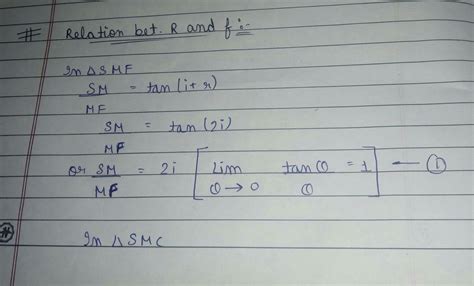 # Relation bet. R and f :-
In △SMF
SM/MF = tan(i+r)
SM/MF = tan(2i)
or SM/MF = 2i [Lim θ→0 tanθ/θ = 1] — ①
#
In △SMC